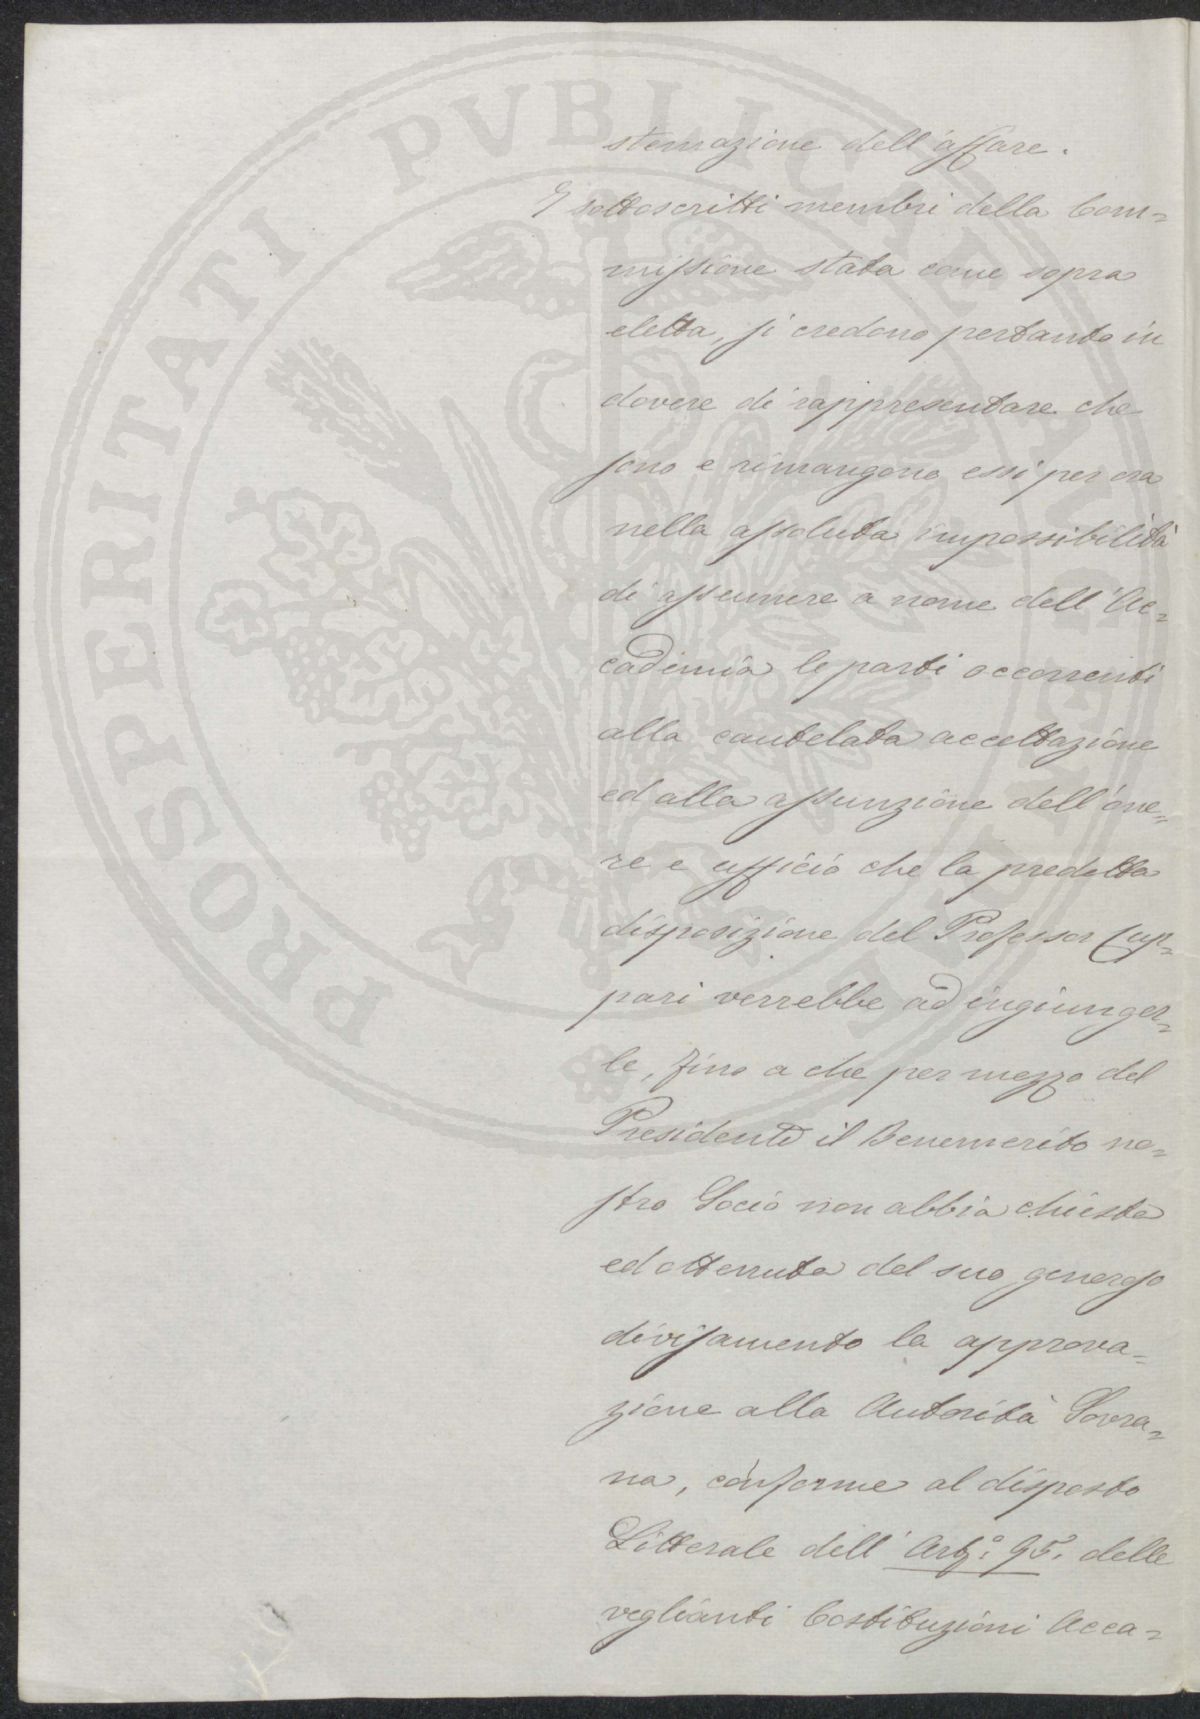 stemazione dell'affare.
I sottoscritti membri della Com=
missione stata come sopra
eletta, si credono pertanto in
dovere di rappresentare che
sono e rimangono essi per ora
nella assoluta impossibilità
di assumere a nome dell'Ac=
cademia le parti occorrenti
alla cautelata accettazione
ed alla assunzione dell'one=
re e ufficio che la predetta
disposizione del Professor Cup=
pari verrebbe ad ingiunger=
le, fino a che per mezzo del
Presidente il Benemerito no=
stro Socio non abbia chiesta
ed ottenuta del suo generoso
divisamento la approva=
zione alla Autorità Sovra=
na, conforme al disposto
Litterale dell'Art.° 95. delle
veglianti Costituzioni Acca=
PROSPERITATI PVBLICAE AVGENDAE